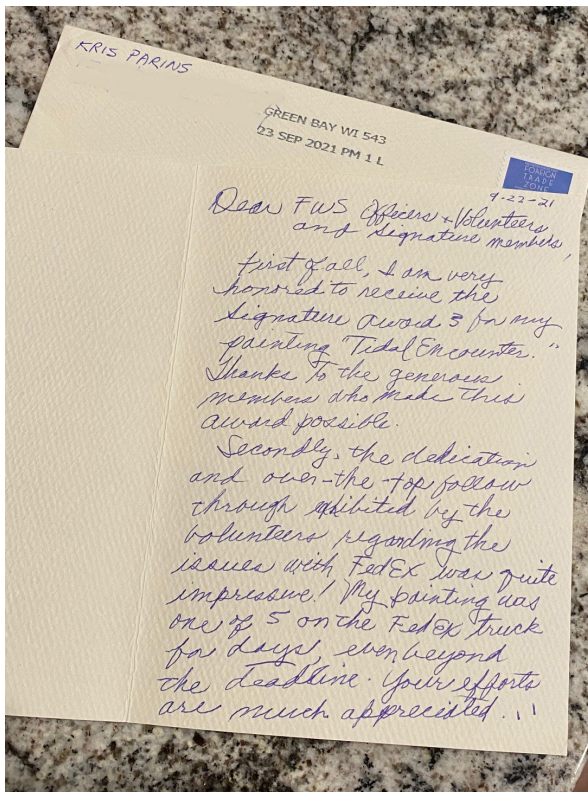 KRIS PARINS
GREEN BAY WI 543
23 SEP 2021 PM 1 L
FOREIGN
TRADE
ZONE
9-22-21
Dear FWS Officers + Volunteers,
and Signature members,
First of all, I am very
honored to receive the
Signature award 3 for my
painting "Tidal Encounter."
Thanks to the generous
members who made this
award possible.
Secondly, the dedication
and over-the-top follow
through exhibited by the
volunteers regarding the
issues with FedEx was quite
impressive! My painting was
one of 5 on the FedEx truck
for days, even beyond
the deadline. Your efforts
are much appreciated...